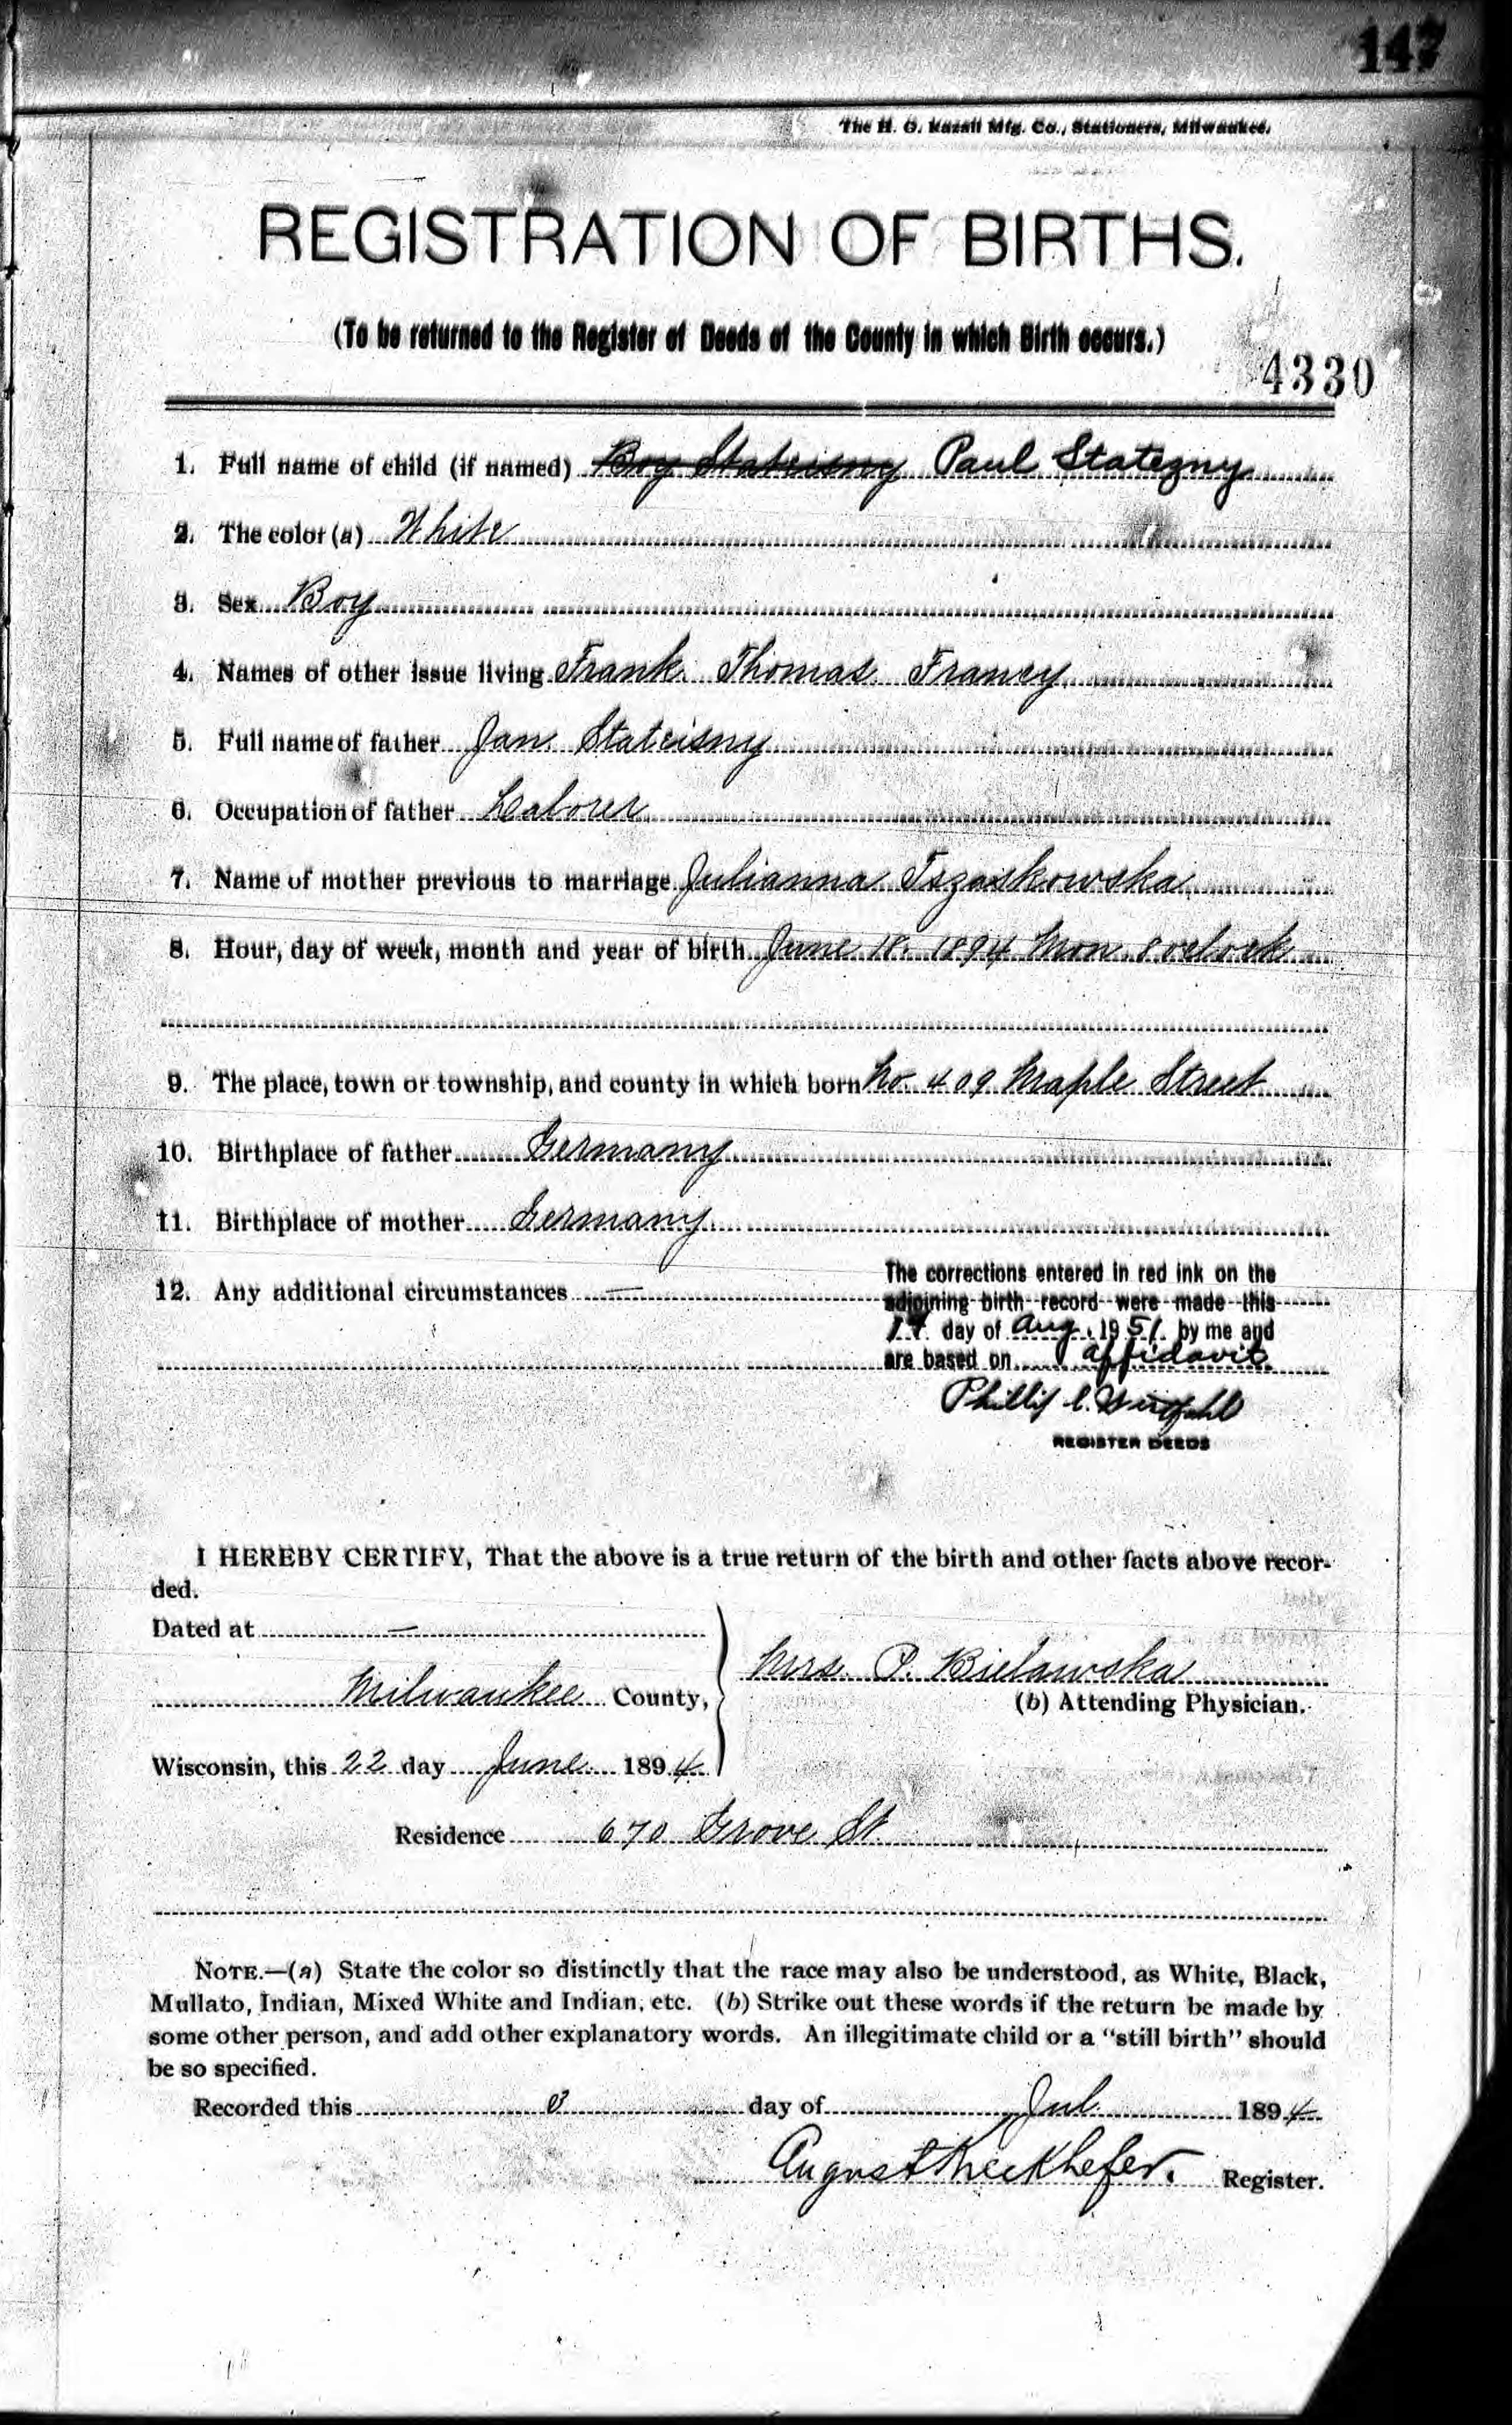 147
The H. G. Razall Mfg. Co., Stationers, Milwaukee.
REGISTRATION OF BIRTHS.
(To be returned to the Register of Deeds of the County in which Birth occurs.)
4330
1. Full name of child (if named) Boy Stateisny Paul Statezny
2. The color (a) White
3. Sex Boy
4. Names of other issue living Frank Thomas Francy
5. Full name of father Jan Stateisny
6. Occupation of father Laborer
7. Name of mother previous to marriage Julianna Tszaskowska
8. Hour, day of week, month and year of birth June 18. 1894 Mon. 8 oclock
9. The place, town or township, and county in which born No. 409 Maple Street
10. Birthplace of father Germany
11. Birthplace of mother Germany
12. Any additional circumstances —
The corrections entered in red ink on the
adjoining birth record were made this
day of Aug. 1951 by me and
are based on affidavit
Phillip C.
REGISTER DEEDS
I HEREBY CERTIFY, That the above is a true return of the birth and other facts above recor-
ded.
Dated at —
Milwaukee County,
Mrs. P. Bielawska
(b) Attending Physician.
Wisconsin, this 22 day June 1894
Residence 670 Grove St.
NOTE.—(a) State the color so distinctly that the race may also be understood, as White, Black,
Mullato, Indian, Mixed White and Indian, etc. (b) Strike out these words if the return be made by
some other person, and add other explanatory words. An illegitimate child or a "still birth" should
be so specified.
Recorded this day of Jul. 1894
August Kieckhefer. Register.